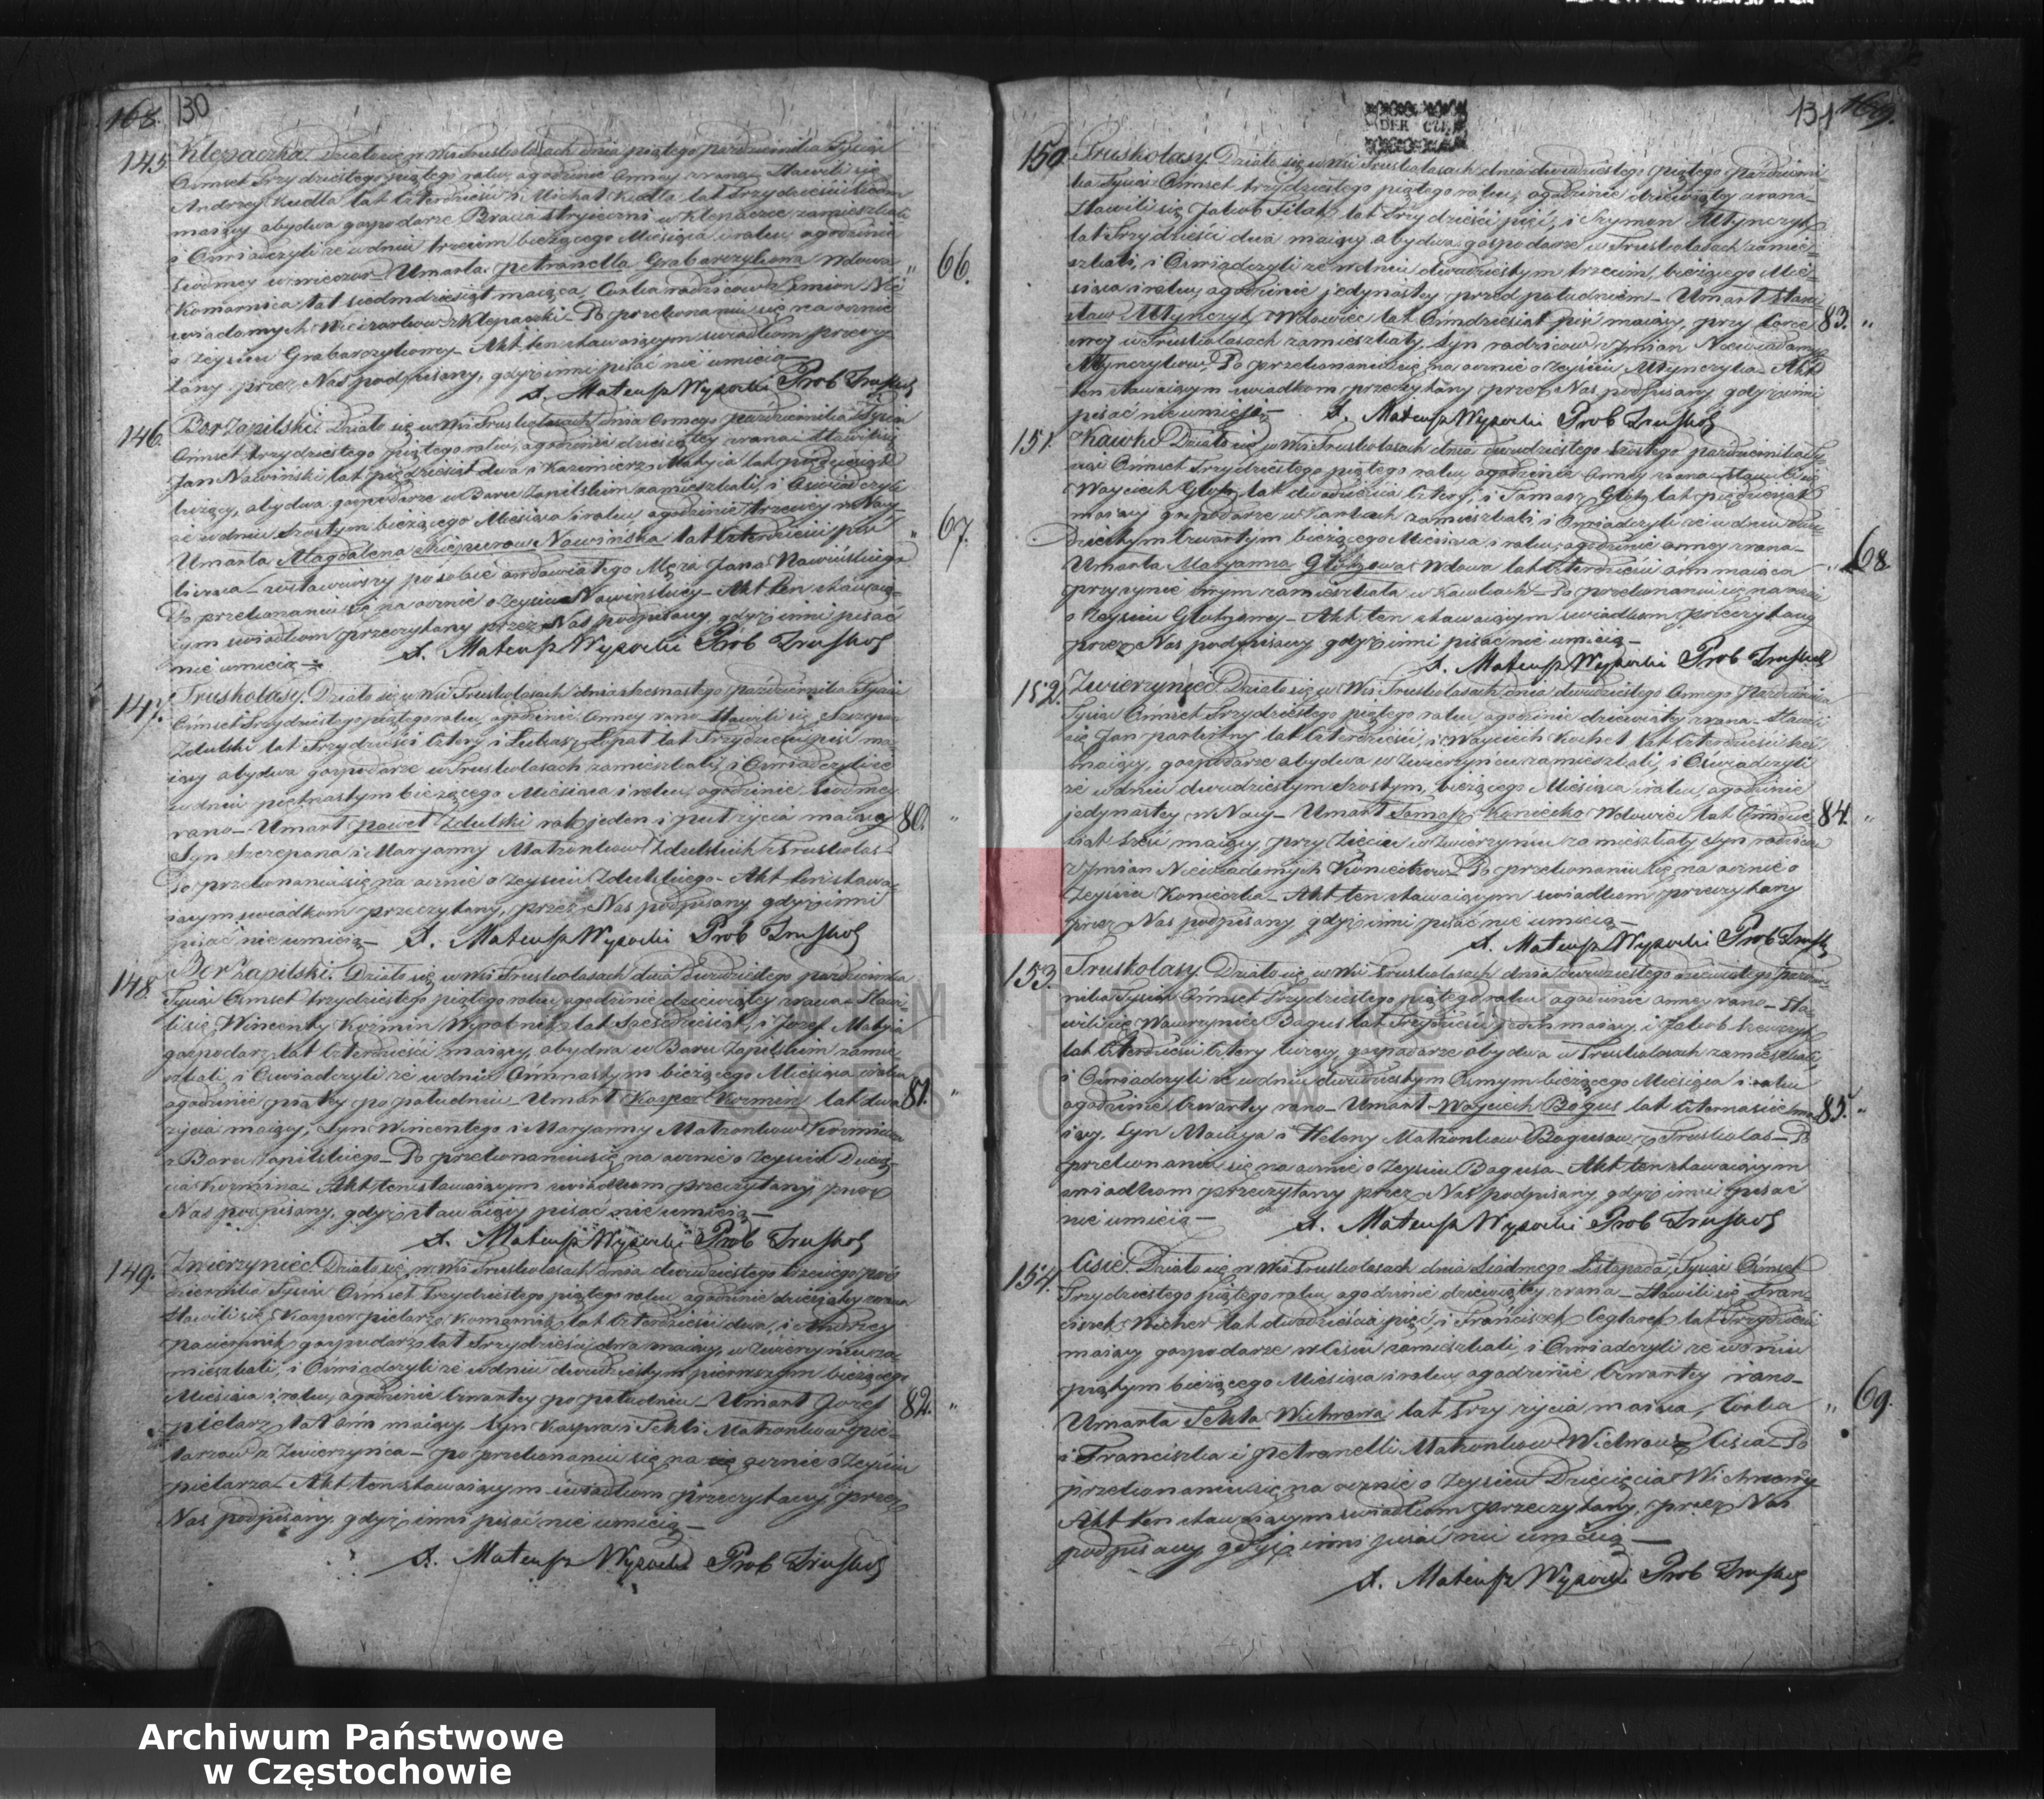 168. 130
145 Klepaczka. Działo się w Wsi Truskolasach dnia piątego Października Tysiąc
Ośmset Trzydziestego piątego roku, o godzinie Osmey zrana, Stawili się
Andrzey Kudła lat Czterdzieści i Michał Kudła lat Trzydzieści
maiący abydwa gospodarze Bracia stryieczni w Klepaczce zamieszkali
i Oświadczyli że w dniu trzecim bieżącego Miesiąca i roku, o godzinie
siodmey wieczor Umarła Petronella Grabarczykowa Wdowa
Komornica, lat siedmdziesiąt maiąca, Corka rodziców z Jmion Nie
wiadomych z Klepaczki. Po przekonaniu się na ocznie
o Zeyściu Grabarczykowey Akt ten stawaiącym swiadkom przeczy
tany przez Nas podpisany, gdyż inni pisać nie umieią
66.
X. Mateusz Wysocki Prob Truskol
146. Bor Zapilski. Działo się w Wsi Truskolasach dnia Osmego Października Tysiąc
Ośmset trzydziestego piątego roku, o godzinie dziesiątey zrana Stawili się
Jan Nawiński lat pięćdziesiąt dwa i Kazimierz Matyia lat pięćdziesiąt
liczący, abydwa gospodarze w Boru Zapilskim zamieszkali, i Oswiadczyli
że w dniu szostym bieżącego Miesiąca i roku o godzinie trzeciey w Nocy
Umarła Magdalena Nawińska lat Czterdzieści pięć
licząca zostawiwszy po sobie owdowiałego Męża Jana Nawińskiego
Po przekonaniu się na ocznie o Zeysciu Nawińskiey Akt ten stawaią
cym swiadkom przeczytany przez Nas podpisany, gdyż inni pisać
nie umieią
67.
X. Mateusz Wysocki Prob Truskol
147. Truskolasy. Działo się w Wsi Truskolasach dnia szesnastego Października Tysiąc
Ośmset Trzydziestego piątego roku, o godzinie Osmey rano Stawili się Szczepan
Zdulski lat Trzydzieści Cztery i Łukasz Łapat lat Trzydzieści pięć ma
iący abydwa gospodarze w Truskolasach zamieszkali, i Oswiadczyli że
w dniu piętnastym bieżącego Miesiąca i roku, o godzinie siodmey
rano Umarł Paweł Zdulski rok jeden i puł życia maiący
80.
Syn Szczepana i Maryanny Małżonkow Zdulskich z Truskolas
Po przekonaniu się na ocznie o Zeysciu Zdulskiego Akt ten stawa
iącym swiadkom przeczytany, przez Nas podpisany gdyż inni
pisać nie umieią
X. Mateusz Wysocki Prob Truskol
148. Bor Zapilski. Działo się w Wsi Truskolasach dnia Dwudziestego października
Tysiąc Ośmset trzydziestego piątego roku o godzinie dziewiątey zrana Stawi
li się Wincenty Kozmin Wyrobnik lat Sześćdziesiąt, i Jozef Matyia
gospodarz lat Czterdzieści maiący, abydwa w Boru Zapilskim zamie
szkali, i Oswiadczyli że w dniu Ośmnastym bieżącego Miesiąca i roku
o godzinie piątey po południu Umarł Kasper Kozmin, lat dwa
81.
życia maiący, Syn Wincentego i Maryanny Małżonkow Kozminow
z Boru Zapilskiego Po przekonaniu się na ocznie o Zeysciu Dziec
ia Kozmina Akt ten stawaiącym swiadkom przeczytany przez
Nas podpisany, gdyż stawaiący pisać nie umieią
X. Mateusz Wysocki Prob Truskol
149. Zwierzyniec. Działo się w Wsi Truskolasach dnia dwudziestego trzeciego paź
dziernika Tysiąc Ośmset Trzydziestego piątego roku o godzinie dziesiątey zrana
Stawili się Kasper Pielarz Komornik lat Czterdzieści dwa, i Andrzey
Paciernik gospodarz lat Trzydzieści dwa maiący, w Zwierzyńcu za
mieszkali, i Oświadczyli że w dniu dwudziestym pierwszym bieżącego
Miesiąca i roku, o godzinie Czwartey po południu Umarł Jozef
82.
Pielarz lat ośm maiący Syn Kaspra i Tekli Małżonkow Pie
larzow z Zwierzyńca po przekonaniu się na ocznie o Zeysciu
Pielarza Akt ten stawaiącym swiadkom przeczytany przez
Nas podpisany gdyż inni pisać nie umieią
X. Mateusz Wysocki Prob Truskol
131 169.
150. Truskolasy. Działo się w Wsi Truskolasach dnia dwudziestego piątego Październi
ka Tysiąc Ośmset trzydziestego piątego roku, o godzinie dziewiątey zrana
Stawili się Jakob Filak lat Trzydzieści pięć, i Szymon Młynczyk
lat Trzydzieści dwa maiący abydwa gospodarze w Truskolasach zamie
szkali, i Oswiadczyli że w dniu dwudziestym trzecim, bieżącego Mie
siąca i roku, o godzinie jedynastey przed południem Umarł Stani
sław Młynczyk Wdowiec lat Ośmdziesiąt pięć maiący, przy Corce
83.
swey w Truskolasach zamieszkały, Syn rodzicow z Jmian Niewiadomych
Młynczykow Po przekonaniu się na ocznie o Zeysciu Młynczyka Akt
ten stawaiącym swiadkom przeczytany przez Nas podpisany gdyż inni
pisać nie umieią
X. Mateusz Wysocki Prob Truskol
151. Kawki. Działo się w Wsi Truskolasach dnia dwudziestego szostego października Ty
siąc Ośmset Trzydziestego piątego roku o godzinie Osmey zrana Stawili się
Woyciech Głotz lat dwadzieścia Cztery, i Tomasz Głotz lat pięćdziesiąt
maiący gospodarze w Kawkach zamieszkali i Oswiadczyli że w dniu dwu
dziestym Czwartym bieżącego Miesiąca i roku, o godzinie osmey zrana
Umarła Maryanna Głotzowa Wdowa lat Czterdzieści osm maiąca
68
przy synie swym zamieszkała w Kawkach Po przekonaniu się na ocznie
o Zeysciu Głotzowey Akt ten stawaiącym swiadkom przeczytany
przez Nas podpisany gdyż inni pisać nie umieią
X. Mateusz Wysocki Prob Truskol
152. Zwierzyniec. Działo się w Wsi Truskolasach dnia dwudziestego Osmego Października
Tysiąc Ośmset Trzydziestego piątego roku, o godzinie dziewiątey zrana Stawili
się Jan lat Czterdzieści, i Woyciech Kochel lat Czterdzieści sześć
maiący, gospodarze abydwa w Zwierzyńcu zamieszkali, i Oswiadczyli
że w dniu dwudziestym szostym, bieżącego Miesiąca i roku, o godzinie
jedynastey w Nocy Umarł Tomasz Koniecko Wdowiec lat Ośmdzie
84.
siąt sześć maiący, przy Zięciu w Zwierzyńcu zamieszkały Syn rodzicow
z Jmian Niewiadomych Po przekonaniu się na ocznie o
Zeysciu Koniecka Akt ten stawaiącym swiadkom przeczytany
przez Nas podpisany gdyż inni pisać nie umieią
X. Mateusz Wysocki Prob Trusk
153. Truskolasy. Działo się w Wsi Truskolasach dnia dwudziestego dziewiątego Paździer
nika Tysiąc Ośmset Trzydziestego piątego roku o godzinie osmey rano Sta
wili się Wawrzyniec Bogus lat Trzydzieści maiący, i Jakob Szewczyk
lat Czterdzieści Cztery liczący, gospodarze abydwa w Truskolasach zamieszkali,
i Oświadczyli że w dniu dwudziestym Osmym bieżącego Miesiąca i roku
o godzinie Czwartey rano Umarł Woyciech Bogus lat Czternaście ma
85.
iący, Syn Macieja i Heleny Małżonkow Bogusow z Truskolas Po
przekonaniu się na ocznie o Zeysciu Bogusa Akt ten stawaiącym
swiadkom przeczytany przez Nas podpisany, gdyż inni pisać
nie umieią
X. Mateusz Wysocki Prob Truskol
154. Cisie. Działo się w Wsi Truskolasach dnia Siodmego Listopada, Tysiąc Ośmset
Trzydziestego piątego roku, o godzinie dziewiątey zrana Stawili się Fran
ciszek Wicher lat dwadzieścia pięć, i Franciszek Ceglarek lat Trzydzieści
maiący gospodarze w Cisiu zamieszkali, i Oswiadczyli że w dniu
piątym bieżącego Miesiąca i roku, o godzinie Czwartey rano
Umarła Tekla Wichrowa, lat trzy życia maiąca, Corka
69.
Franciszka i Petronelli Małżonkow Wichrow z Cisia Po
przekonaniu się na ocznie o Zeysciu Dziecięcia Wichrowey
Akt ten stawaiącym swiadkom przeczytany, przez Nas
podpisany gdyż inni pisać nie umieią
X. Mateusz Wysocki Prob Truskol
ARCHIWUM PAŃSTWOWE
W CZĘSTOCHOWIE
Archiwum Państwowe
w Częstochowie